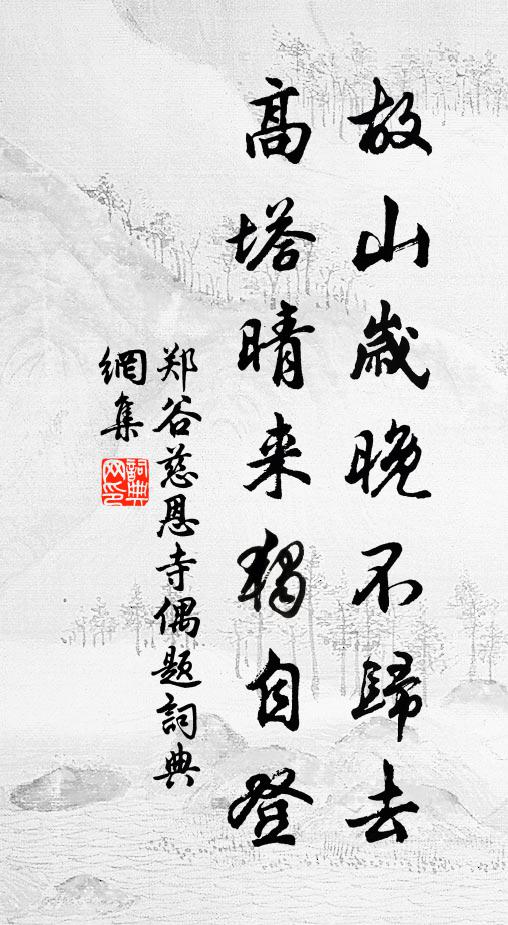 故山歲晚不歸去
高塔晴来獨自登
郑谷慈恩寺偶题詞典
網集
詞典
网印